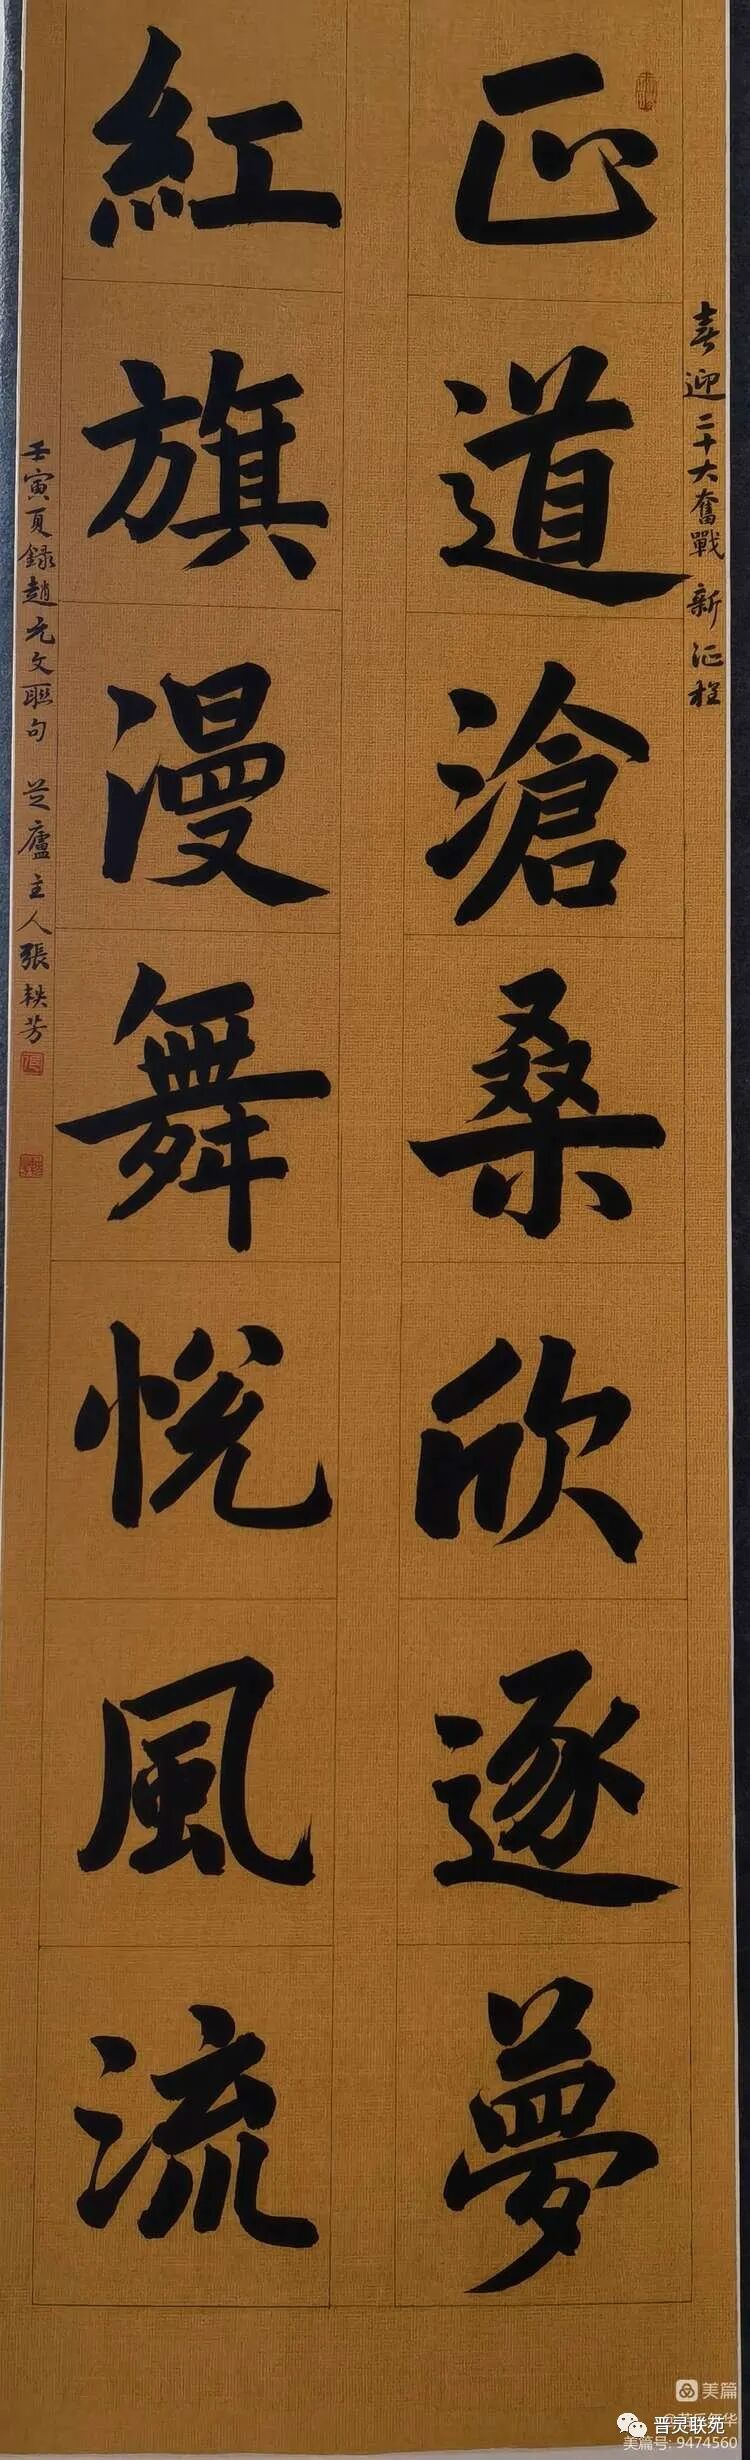 喜迎二十大奮戰新征程
正道滄桑欣逐夢
紅旗漫舞悦風流
壬寅夏録趙元文聯句 芝廬主人張軼芳
美篇
晋灵联苑
美篇号: 9474560